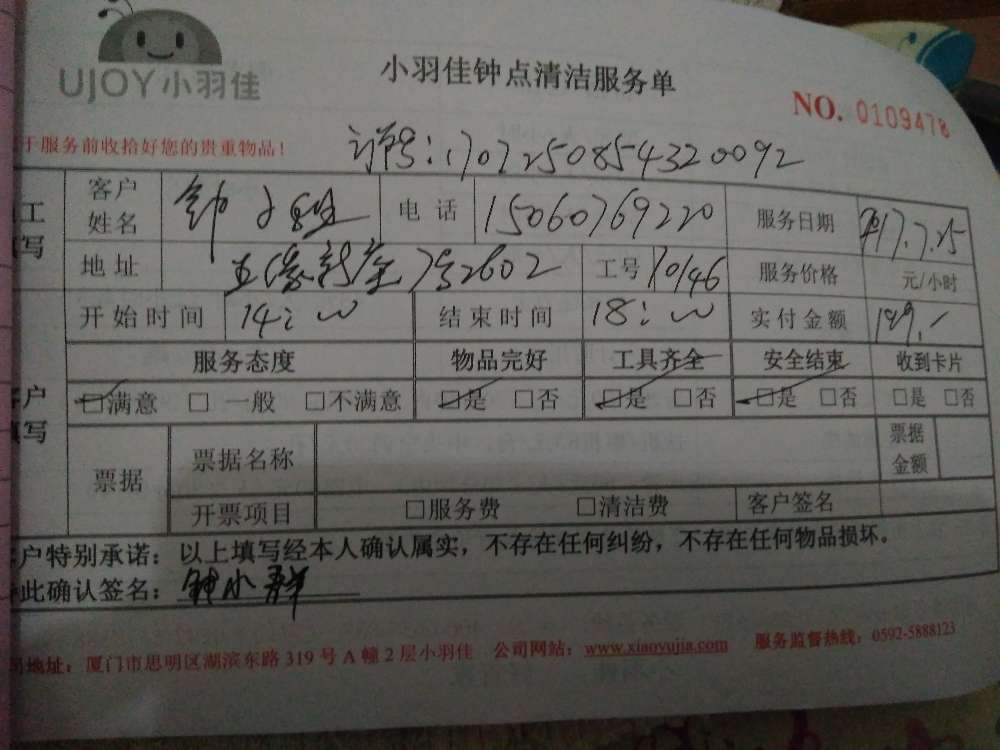 UJOY小羽佳
小羽佳钟点清洁服务单
NO. 0109478
于服务前收拾好您的贵重物品！
订单号：1707250854320092
工 填写 客户姓名 钟小群 电话 15060769220 服务日期 2017.7.25
地址 2602 工号 10146 服务价格 元/小时
开始时间 14:00 结束时间 18:00 实付金额 149.-
客户填写 服务态度 物品完好 工具齐全 安全结束 收到卡片
☑满意 □一般 □不满意 ☑是 □否 ☑是 □否 ☑是 □否 □是 □否
票据 票据名称 票据金额
开票项目 □服务费 □清洁费 客户签名
客户特别承诺：以上填写经本人确认属实，不存在任何纠纷，不存在任何物品损坏。
此确认签名：钟小群
司地址：厦门市思明区湖滨东路319号A幢2层小羽佳 公司网站：www.xiaoyujia.com 服务监督热线：0592-5888123